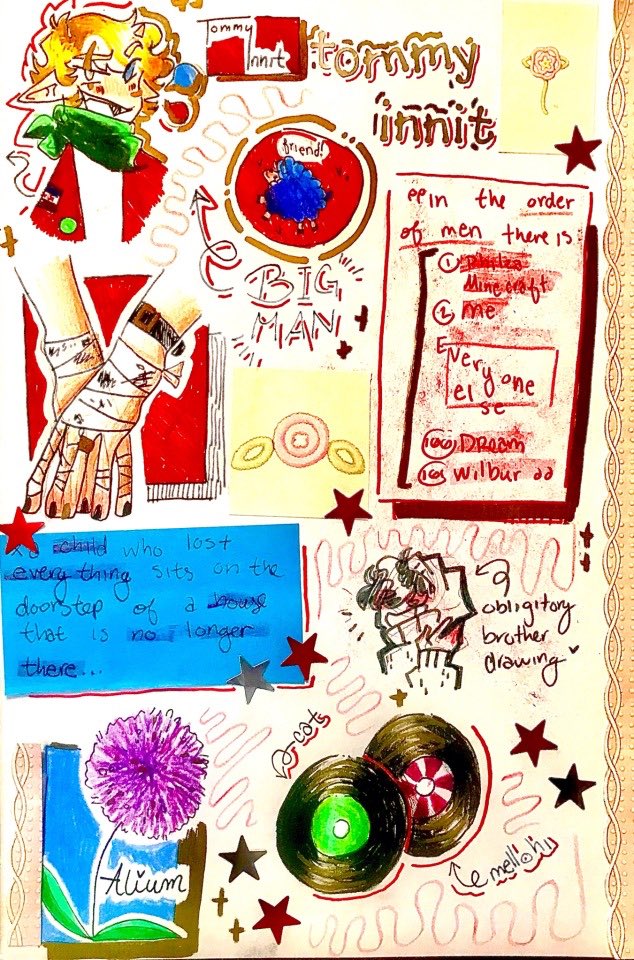 Tommy
Innit
tommy
innit
friend!
BIG
MAN
"in the order
of men there is
① Philza
Minecraft
② me
Every one
else
100 Dream
101 Wilbur
child who lost
everything sits on the
doorstep of a house
that is no longer
there...
obligitory
brother
drawing
cats
mellohi
Alium